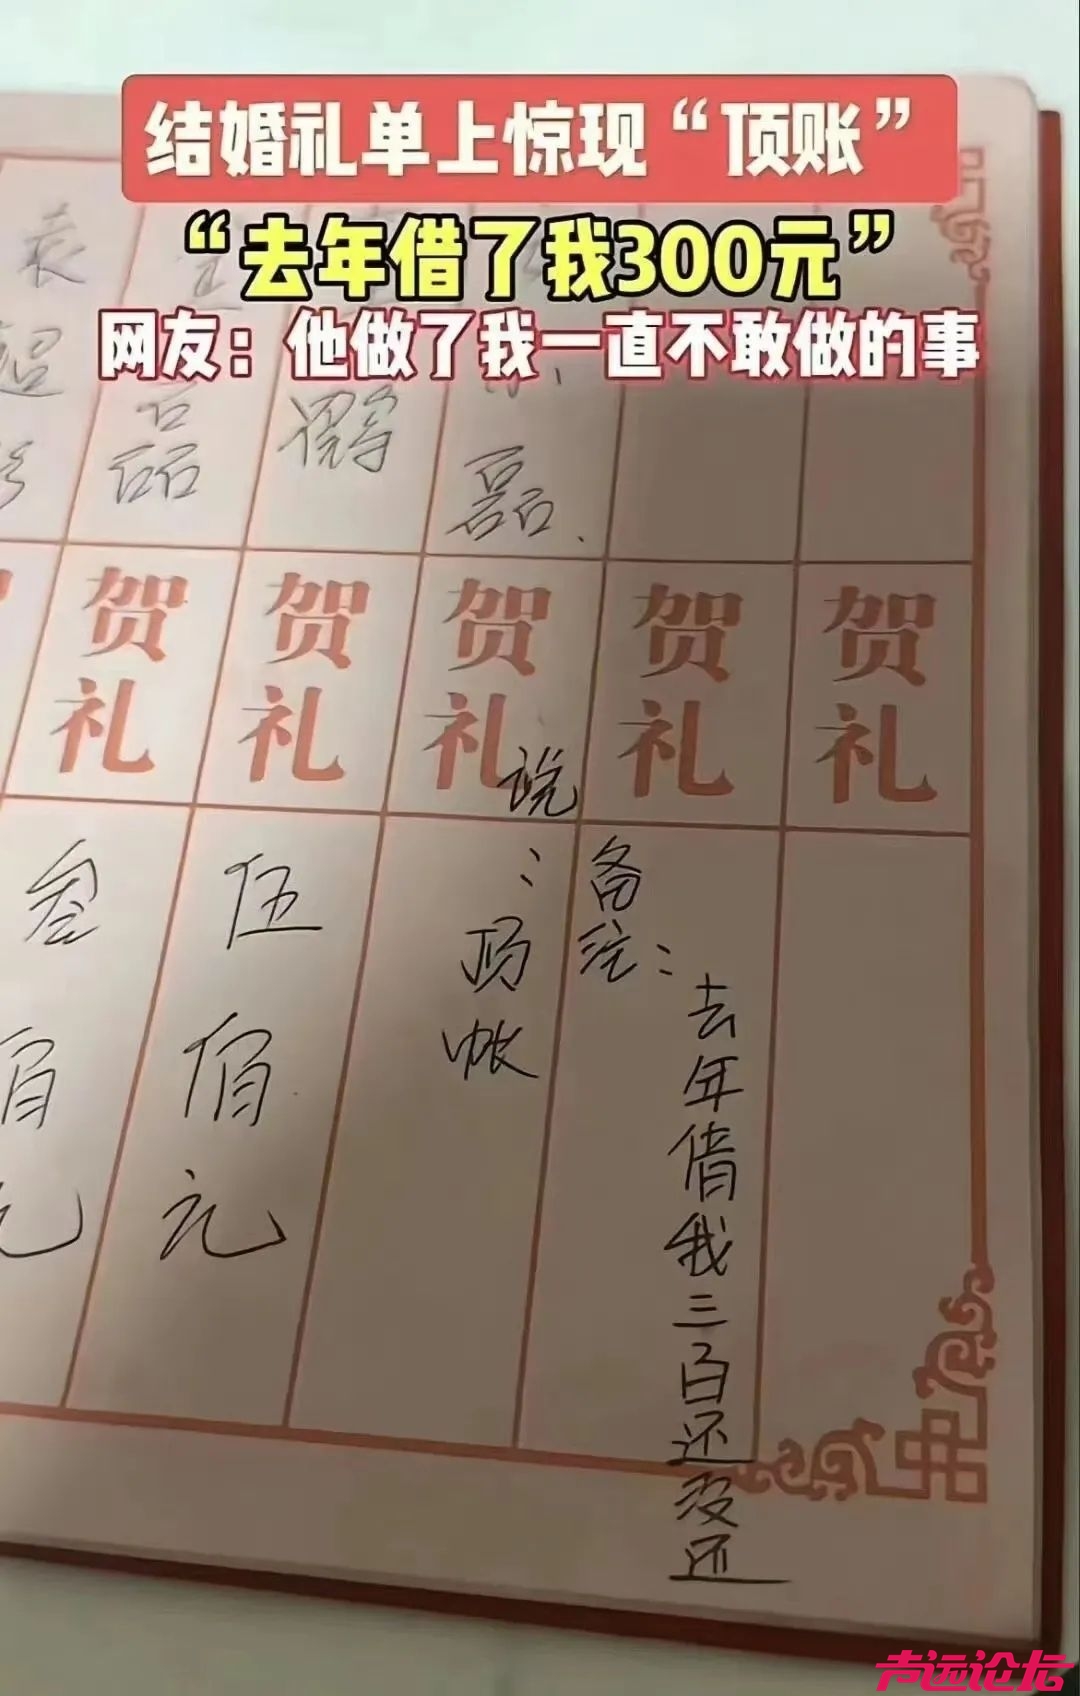 结婚礼单上惊现“顶账”
“去年借了我300元”
网友：他做了我一直不敢做的事
袁
磊
磊
贺礼
贺礼
贺礼
贺礼
贺礼
叁佰元
伍佰元
说：顶帐
备注：去年借我三百还没还
声远论坛